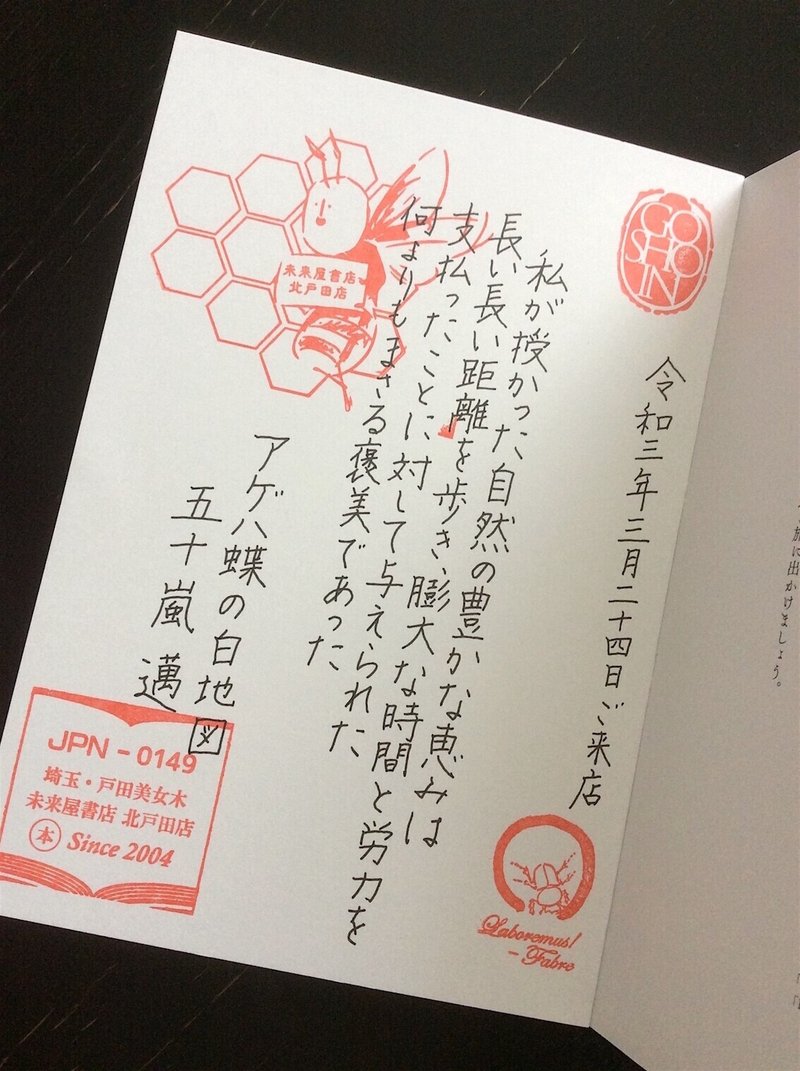 GO
SHO
IN
令和三年三月二十四日ご来店
私が授かった自然の豊かな恵みは
長い長い距離を歩き、膨大な時間と労力を
支払ったことに対して与えられた
何よりもまさる褒美であった
アゲハ蝶の白地図
五十嵐 邁
未来屋書店
北戸田店
JPN-0149
埼玉・戸田美女木
未来屋書店 北戸田店
本 Since 2004
Laboremus!
-Fabre
旅に出かけましょう。